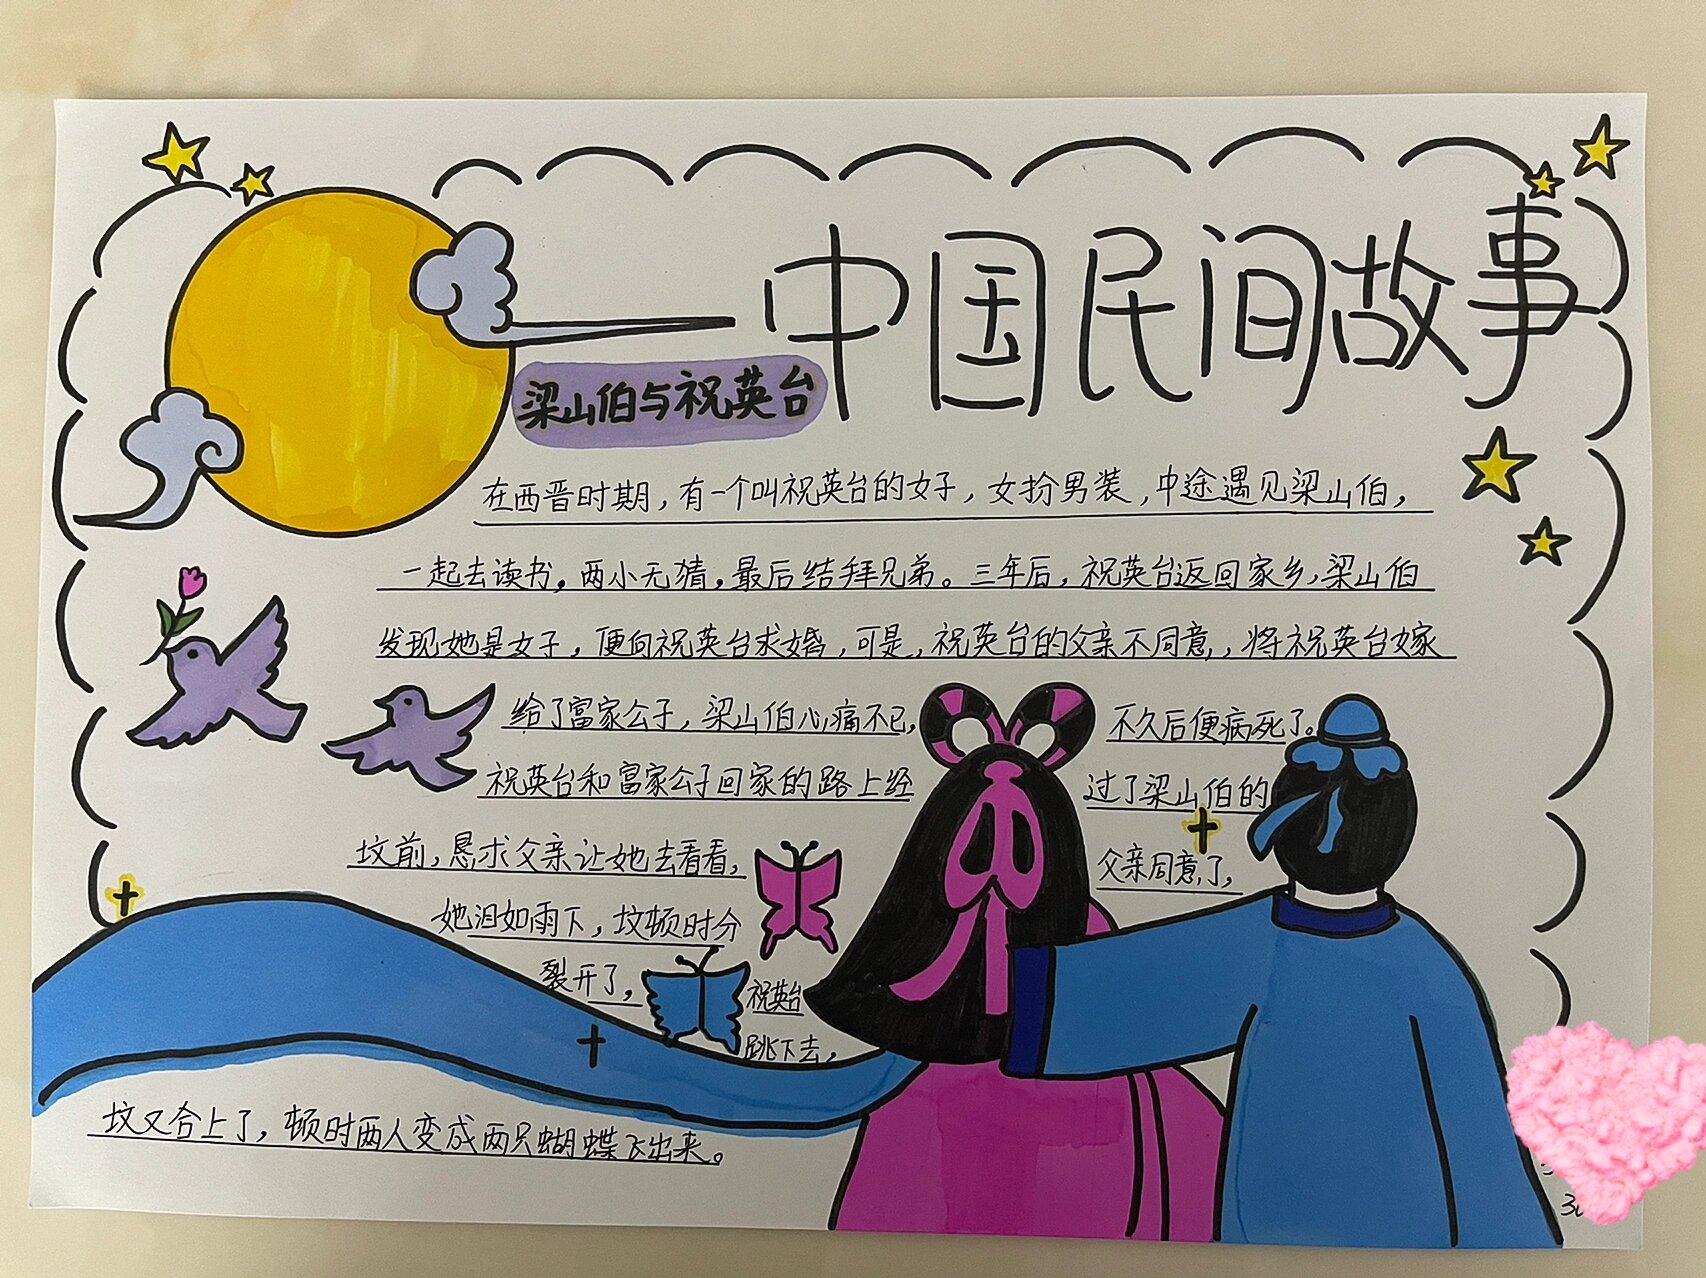 中国民间故事
梁山伯与祝英台
在西晋时期，有一个叫祝英台的女子，女扮男装，中途遇见梁山伯，
一起去读书，两小无猜，最后结拜兄弟。三年后，祝英台返回家乡，梁山伯
发现她是女子，便向祝英台求婚，可是，祝英台的父亲不同意，将祝英台嫁
给了富家公子，梁山伯心痛不已，不久后便病死了。
祝英台和富家公子回家的路上经过了梁山伯的
坟前，恳求父亲让她去看看，父亲同意了，
她泪如雨下，坟顿时分
裂开了，祝英台
跳下去，
坟又合上了，顿时两人变成两只蝴蝶飞出来。